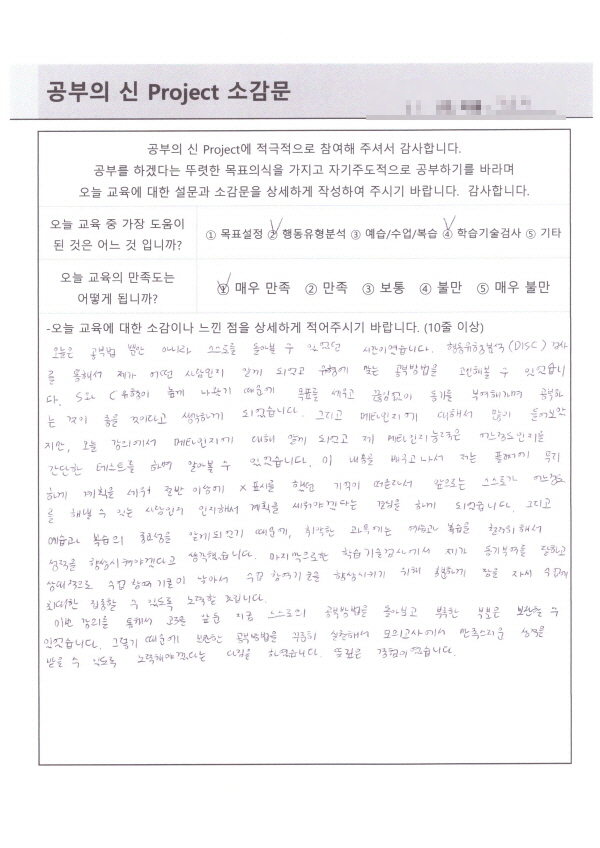 공부의 신 Project 소감문
공부의 신 Project에 적극적으로 참여해 주셔서 감사합니다.
공부를 하겠다는 뚜렷한 목표의식을 가지고 자기주도적으로 공부하기를 바라며
오늘 교육에 대한 설문과 소감문을 상세하게 작성하여 주시기 바랍니다. 감사합니다.
오늘 교육 중 가장 도움이
된 것은 어느 것 입니까?
① 목표설정 ② 행동유형분석 ③ 예습/수업/복습 ④ 학습기술검사 ⑤ 기타
오늘 교육의 만족도는
어떻게 됩니까?
① 매우 만족 ② 만족 ③ 보통 ④ 불만 ⑤ 매우 불만
-오늘 교육에 대한 소감이나 느낀 점을 상세하게 적어주시기 바랍니다. (10줄 이상)
오늘은 공부법 뿐만 아니라 스스로를 돌아볼 수 있었던 시간이었습니다. 행동유형분석(DISC) 검사
를 통해서 제가 어떤 사람인지 알게 되었고 유형에 맞는 공부방법을 고민해볼 수 있었습니
다. S와 C유형이 높게 나왔기 때문에 목표를 세우고 끊임없이 동기를 부여해가며 공부하
는 것이 좋을 것이라고 생각하게 되었습니다. 그리고 메타인지에 대해서 많이 들어보았
지만, 오늘 강의에서 메타인지에 대해 알게 되었고 제 메타인지능력은 어느정도인지를
간단한 테스트를 하며 알아볼 수 있었습니다. 이 내용을 배우고 나서 저는 플래너에 무리
하게 계획을 세워 절반 이상에 X표시를 했던 기억이 떠올라서 앞으로는 스스로가 어느정도
를 해낼 수 있는 사람인지 인지해서 계획을 세워야겠다는 결심을 하게 되었습니다. 그리고
예습과 복습의 중요성을 알게 되었기 때문에, 취약한 과목에는 예습과 복습을 철저히 해서
성적을 향상시켜야겠다고 생각했습니다. 마지막으로한 학습기술검사에서 제가 동기부여를 잘하고
상대적으로 수업 참여 기술이 낮아서 수업 참여기술을 향상시키기 위해 충분하게 잠을 자서 수업에
최대한 집중할 수 있도록 노력할 것입니다.
이번 강의를 통해서 고3을 앞둔 지금 스스로의 공부방법을 돌아보고 부족한 부분을 보완할 수
있었습니다. 그렇기 때문에 보완한 공부방법을 꾸준히 실천해서 모의고사에서 만족스러운 성적을
받을 수 있도록 노력해야겠다는 다짐을 하였습니다. 뜻깊은 경험이었습니다.